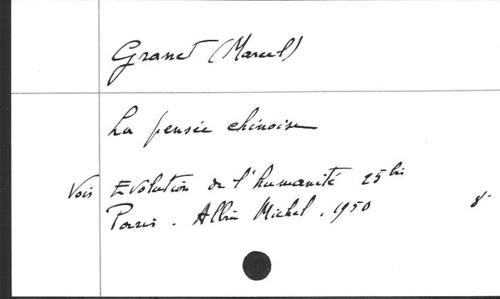 Granet (Marcel)
La pensée chinoise
Vois Evolution de l'humanité 25 bis
Paris. Albin Michel. 1950 8°